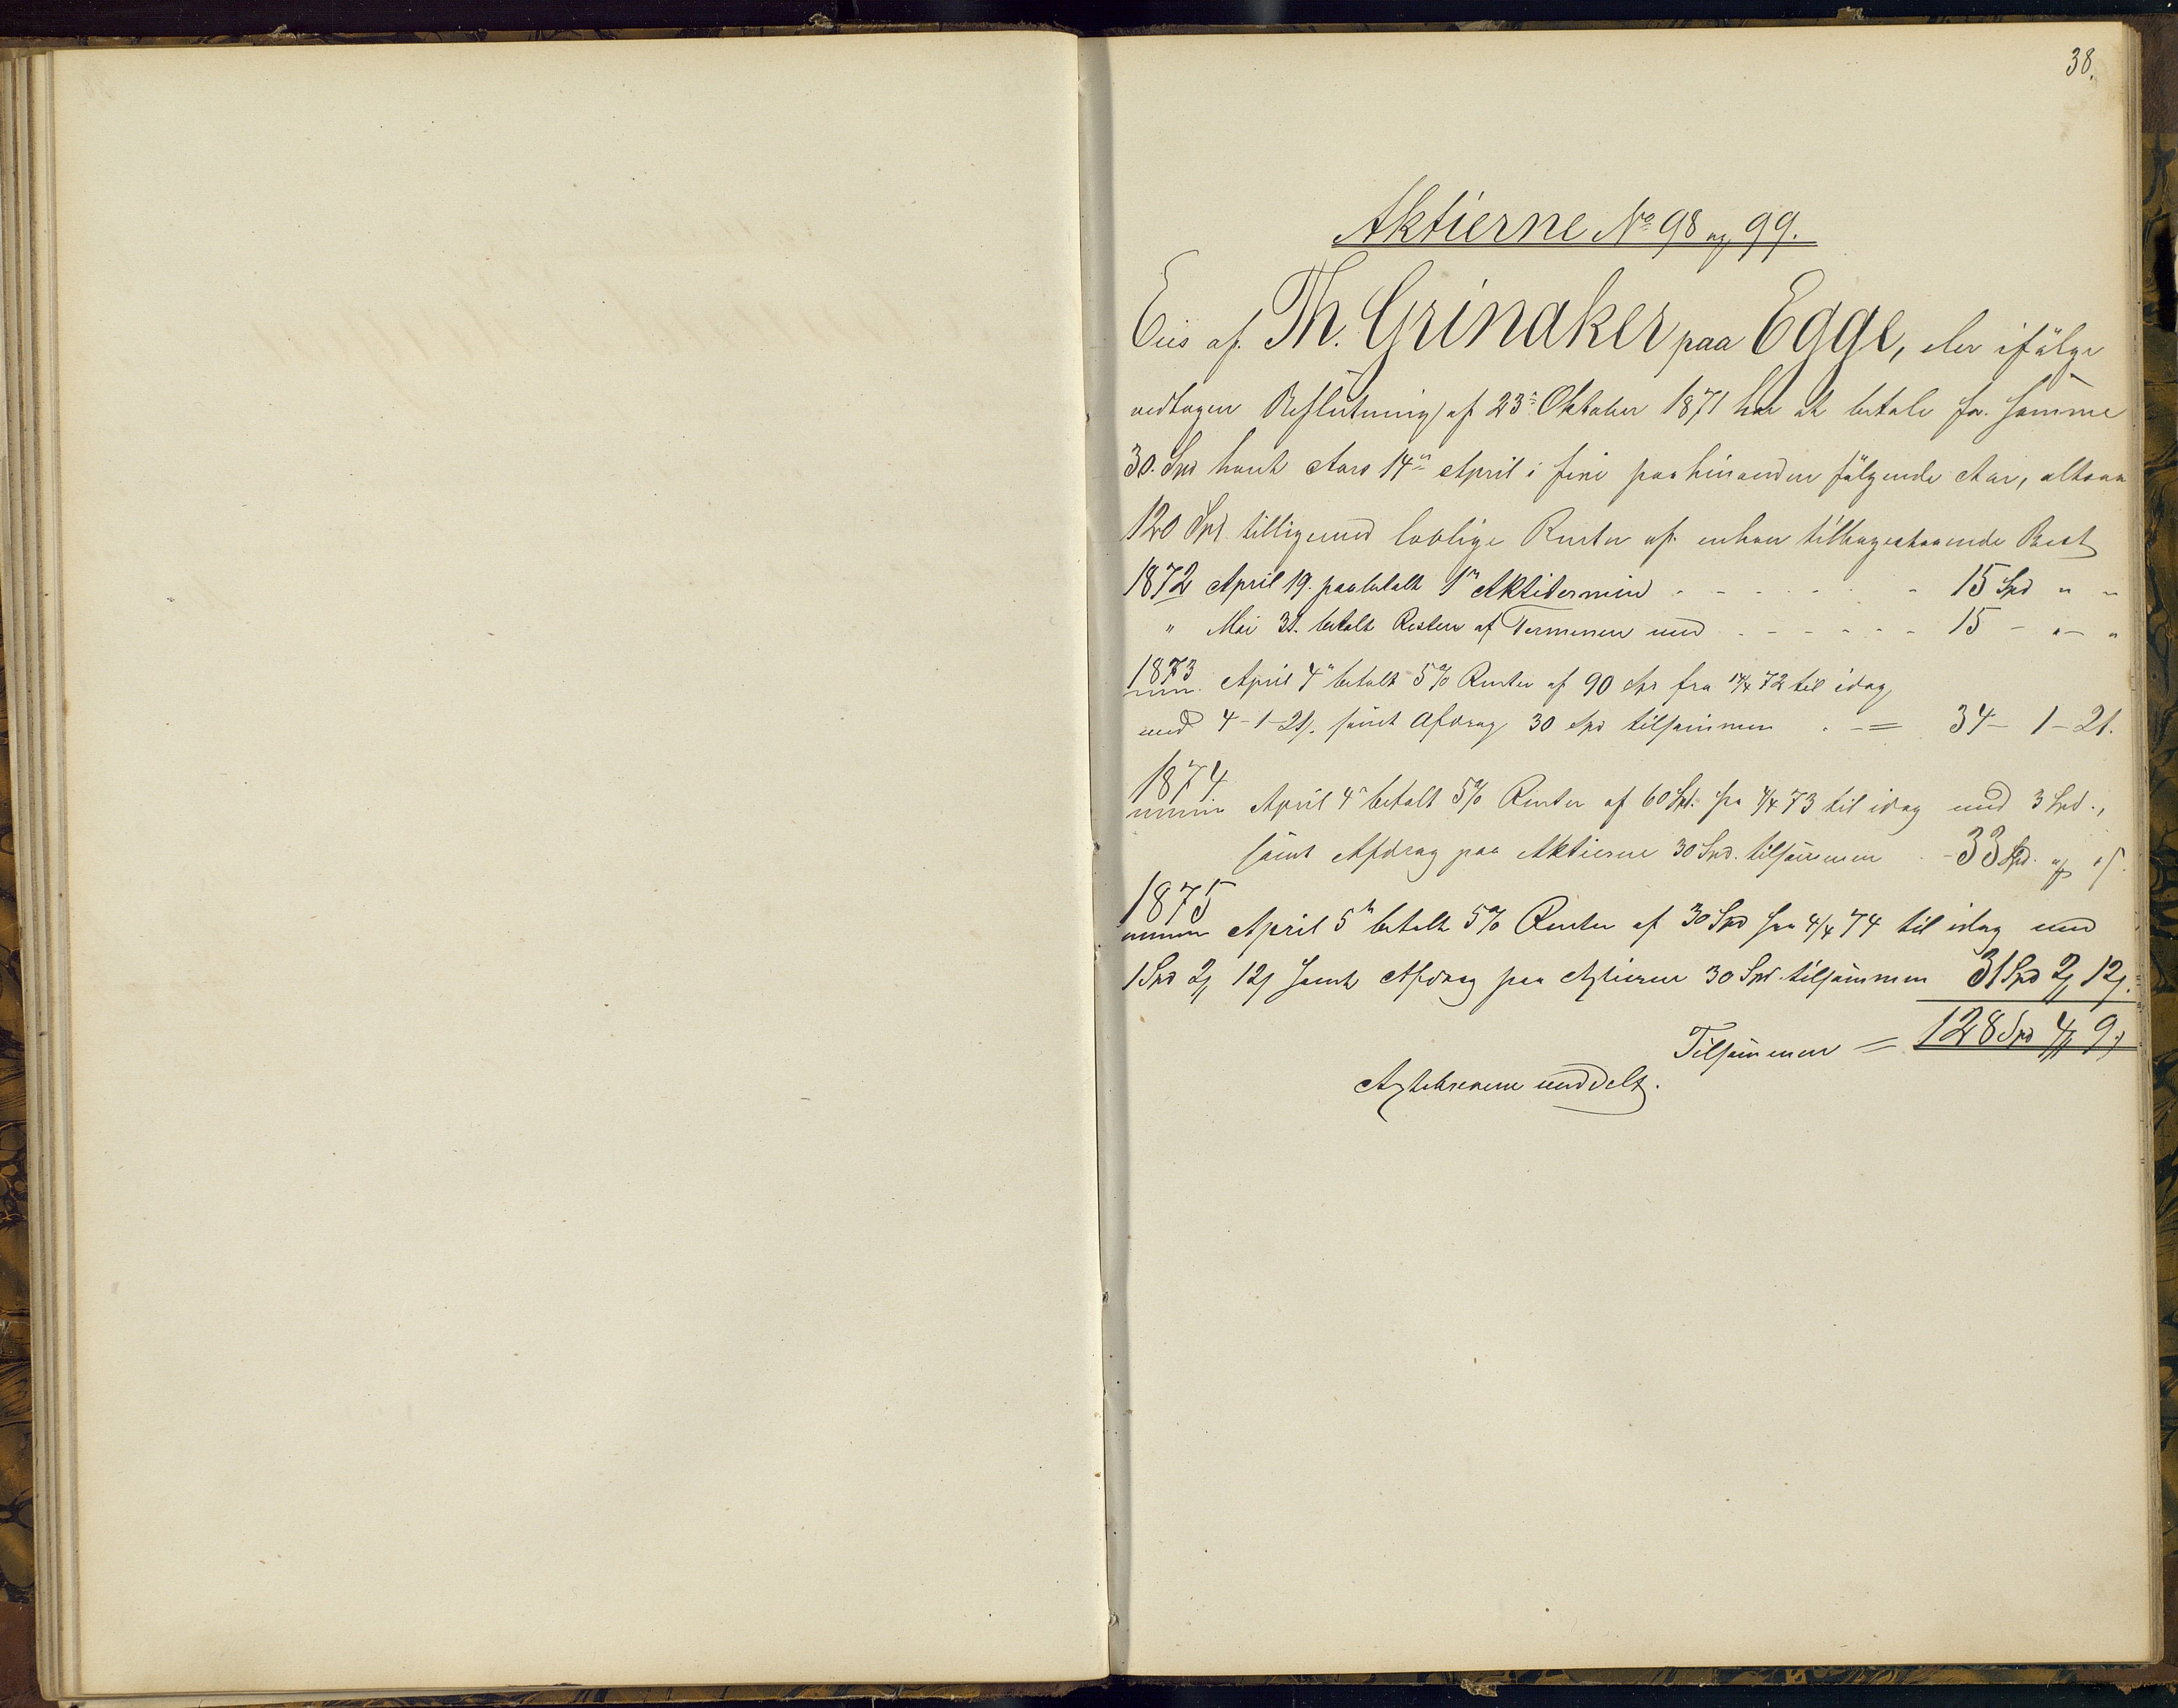 38.
Aktierne No 98 og 99.
Eies af Th. Grinaker paa Egge, der ifølge
vedtagen Beslutning af 23de Oktober 1871 har at betale for samme
30. Spd hvert Aars 14de April i fire paa hinanden følgende Aar, altsaa
120 Spd tilligemed lovlige Renter af enhver tilbagestaaende Rest
1872 April 19. paabetalt 1ste Aktietermin - - - - - - 15 Spd " "
" Mai 31. betalt Resten af Terminen med - - - - - - 15 - " - "
1873 April 4de betalt 5% Renter af 90 Spd fra 14/4 72 til idag
med 4-1-21. samt Afdrag 30 Spd tilsammen - - = 34 - 1 - 21.
1874 April 4de betalt 5% Renter af 60 Spd. fra 4/4 73 til idag med 3 Spd.,
samt Afdrag paa Aktierne 30 Spd. tilsammen - 33 Spd.
1875 April 5te betalt 5% Renter af 30 Spd fra 4/4 74 til idag med
1 Spd 2 12 samt Afdrag paa Aktierne 30 Spd. tilsammen 31 Spd 2 12.
Tilsammen = 128 Spd 4 9
meddelt.